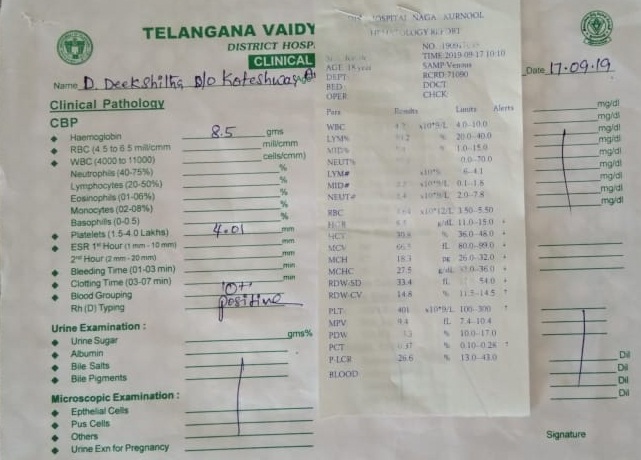 TELANGANA VAIDY
DISTRICT HOSP
CLINICAL
Name D. Deekshitha D/o Koteshwar
Date 17.09.19
Clinical Pathology
CBP
Haemoglobin 8.5 gms
RBC (4.5 to 6.5 mill/cmm mill/cmm
WBC (4000 to 11000) cells/cmm)
Neutrophils (40-75%) %
Lymphocytes (20-50%) %
Eosinophils (01-06%) %
Monocytes (02-08%) %
Basophils (0-0.5) %
Platelets (1.5-4.0 Lakhs) 4.01 mm
ESR 1st Hour (1 mm - 10 mm) mm
2nd Hour (2 mm - 20 mm) mm
Bleeding Time (01-03 min) min
Clotting Time (03-07 min) min
Blood Grouping 'O+'
Rh (D) Typing positive
Urine Examination :
Urine Sugar gms%
Albumin
Bile Salts
Bile Pigments
Microscopic Examination :
Epthelial Cells
Pus Cells
Others
Urine Exn for Pregnancy
HOSPITAL NAGA KURNOOL
REPORT
NO.
TIME 2019-09-17 10:10
AGE 18 year SAMP Venous
DEPT RCRD 71080
BED DOCT
OPER CHCK
Para Results Limits Alerts
WBC x10^9/L 4.0-10.0
LYM% % 20.0-40.0
MID% % 1.0-15.0
NEUT%
LYM#
MID# x10^9/L 0.1-1.8
NEUT# x10^9/L 2.0-7.8
RBC x10^12/L 3.50-5.50
HGB g/dL 11.0-15.0
HCT 30.8 % 36.0-48.0
MCV 66.5 fL 80.0-99.0
MCH 18.3 pg 26.0-32.0
MCHC 27.5 g/dL 32.0-36.0
RDW-SD 33.4 fL 54.0
RDW-CV 14.8 % 11.5-14.5 ↑
PLT 401 x10^9/L 100-300 ↑
MPV 9.4 fL 7.4-10.4
PDW % 10.0-17.0
PCT 0.37 % 0.10-0.28 ↑
P-LCR 26.6 % 13.0-43.0
BLOOD
mg/dl
mg/dl
mg/dl
mg/dl
mg/dl
mg/dl
mg/dl
mg/dl
mg/dl
Dil
Dil
Dil
Dil
Signature